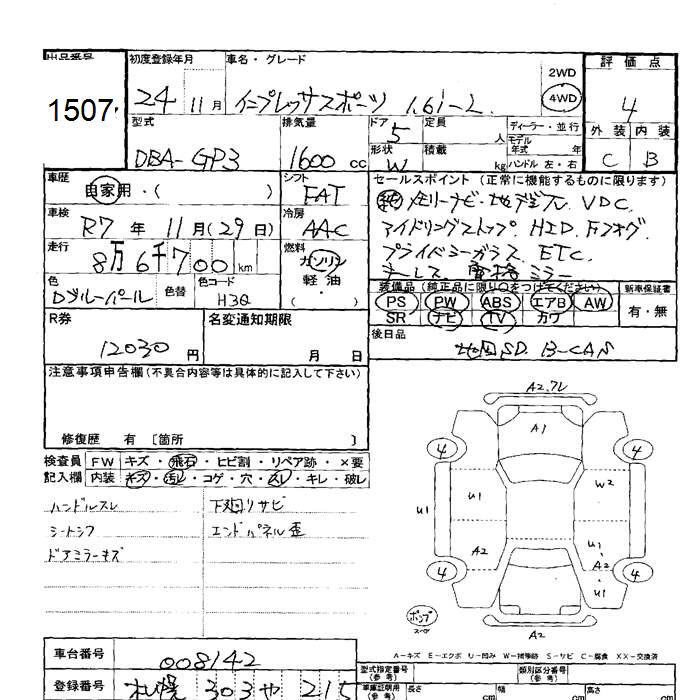 出品番号
1507
初度登録年月
24 11月
車名・グレード
インプレッサスポーツ 1.6i-L
2WD
4WD
評価点
4
外装 内装
C B
型式
DBA-GP3
排気量
1600 cc
ドア 5
形状 W
定員 人
積載 kg
ディーラー・並行
モデル年式 年式
ハンドル 左・右
車歴
自家用・( )
シフト
FAT
車検
R7年 11月(29日)
冷房
AAC
走行
8万6千700 km
燃料
ガソリン
軽油
・( )
色
Dブルーパール
色替
色コード
H3Q
セールスポイント(正常に機能するものに限ります)
純メモリナビ・地デジTV. VDC.
アイドリングストップ. HID. Fフォグ
プライバシーガラス. ETC.
キーレス. 電格ミラー
装備品(純正品に限り○をつけてください)
PS PW ABS エアB AW
SR ナビ TV カワ
新車保証書
有・無
R券
12030 円
名変通知期限
月 日
後日品
地図SD. B-CAS
注意事項申告欄(不具合内容等は具体的に記入して下さい)
修復歴 有 [箇所 ]
検査員記入欄
FW キズ・飛石・ヒビ割・リペア跡・×要
内装 キズ・汚レ・コゲ・穴・スレ・キレ・破レ
ハンドルスレ
シートシワ
ドアミラーキズ
下廻リサビ
エンドパネル歪
A2.ワレ
A1
4
4
U1
U1
W2
U1
A2
U1
A2
U1
4
4
ポンプ
A2
A-キズ E-エクボ U-凹み W-補修跡 S-サビ C-腐食 XX-交換済
車台番号
008142
登録番号
札幌 303 や 215
型式指定番号
(参考)
類別区分番号
(参考)
車庫証明用
(参考)
長さ cm
幅 cm
高さ cm